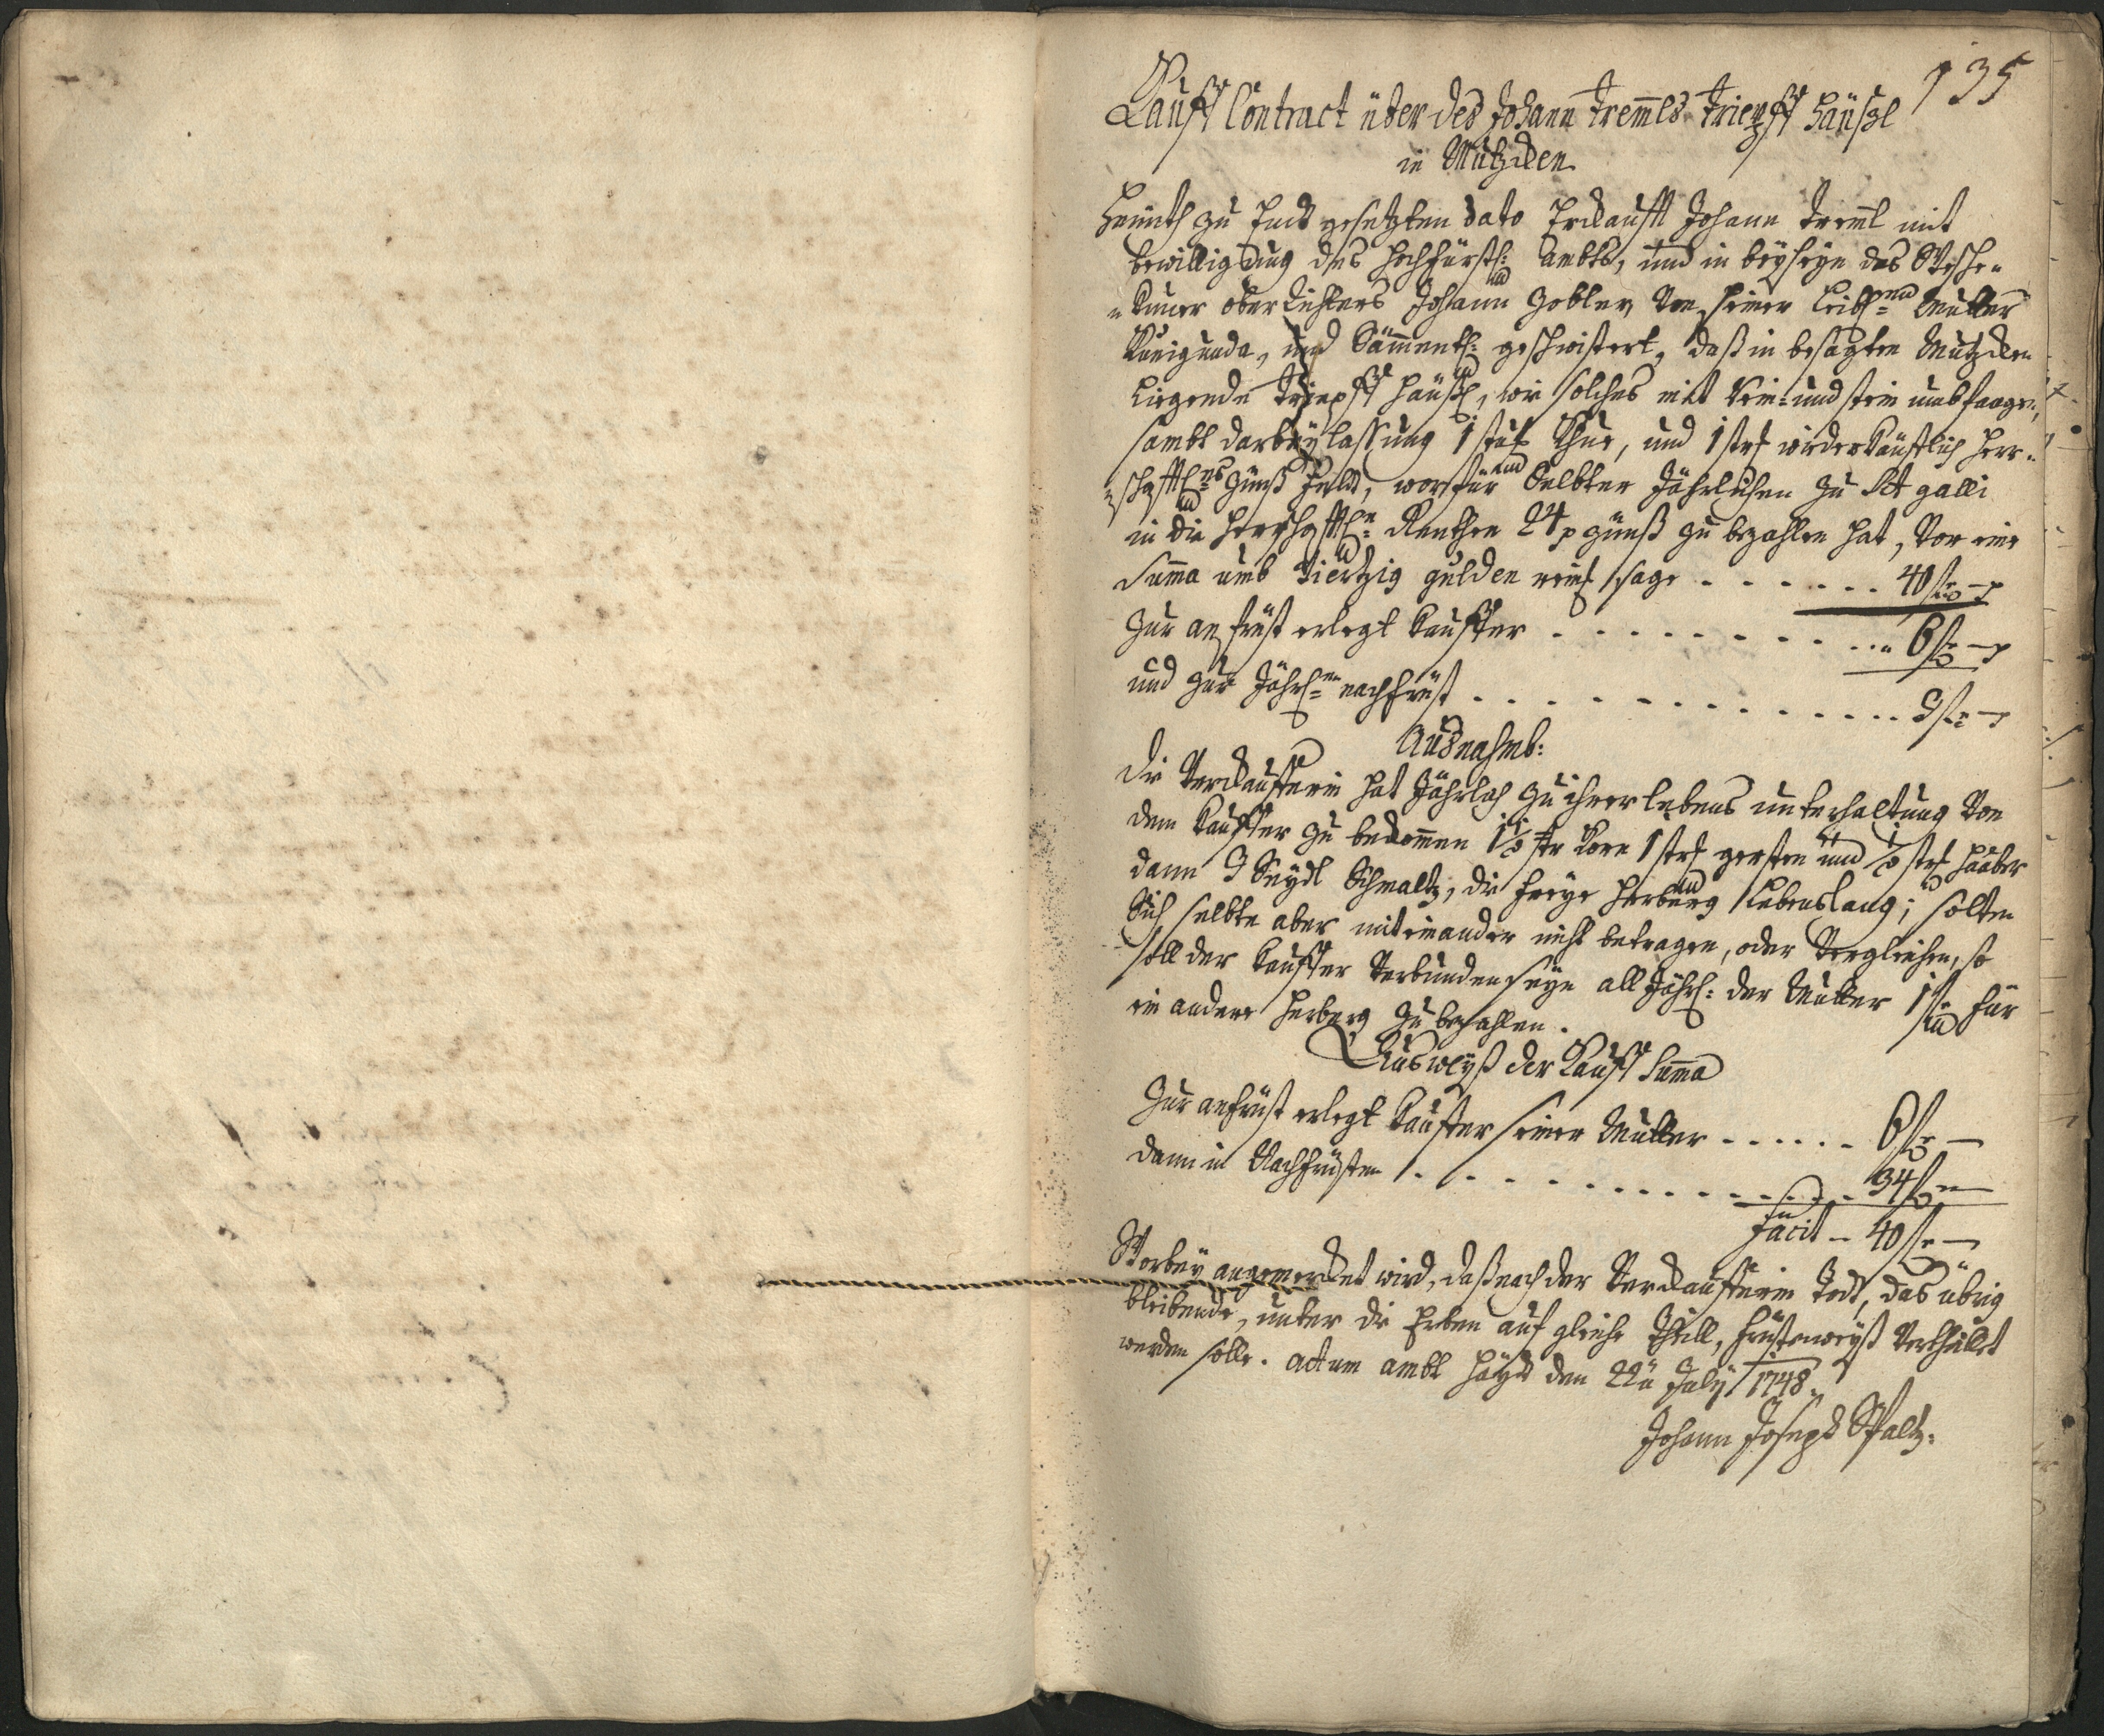 135
Kauff Contract über des Johann Tremls Tripfft Häußl
in Mutzden
Heünth zu Endt gesetzten dato Erkaufft Johann Treml mit
bewilligung des Hochfürstl: Ambts, und in beyseyn des
Ober Richters Johann Gobler, Von seiner Leibl: Mutter
Kunigunda, und Sämmentl: geschwistert, daß in besagten Mutzden
Liegende Tripfft Häußl, wie solches mit Rein- und stein umbfangen,
sambt darbeylassung 1 und 1 str wiederkäuflich herr-
schafftl: Zünß Feld, worfür Selbter Jährlichen zu Sct galli
in die Herrschafftl: Renthen 24 x Zünß zu bezahlen hat, Vor eine
Summa umb Viertzig gulden reinl sage . . . . . . 40 f —
Zur anfrist erlegt Kauffer . . . . . . . . . . . 6 f —
und zur Jährl: nachfrist . . . . . . . . . . . . . . f —
Ausnahmb:
Die Verkaufferin hat Jährlich zu ihrer lebens unterhaltung Von
dem Kauffer zu bekommen 1 1/2 str Korn 1 str gersten und 1/2 str Haaber
dann 3 Seydl Schmaltz, die freye Herberg Lebenslang; solten
Sich selbte aber miteinander nicht betragen, oder Vergleichen, so
soll der Kauffer Verbunden seyn all Jährl: der Mutter 1 f für
ein andere Herberg zu bezahlen.
Ausweyß der Kauff Summa
Zur anfrist erlegt Kauffer seiner Mutter . . . . . . 6 f —
dann in Nachfristen . . . . . . . . . . . . . . 34 f —
Facit — 40 f —
Worbey angemerket wird, daß nach der Verkaufferin Todt, das übrig
bleibende, unter die Erben auf gleiche Theill, fristenweyß Vertheillet
werden solle. Actum ambt Hayd den 22ten July 1748.
Johann Joseph Waltz.